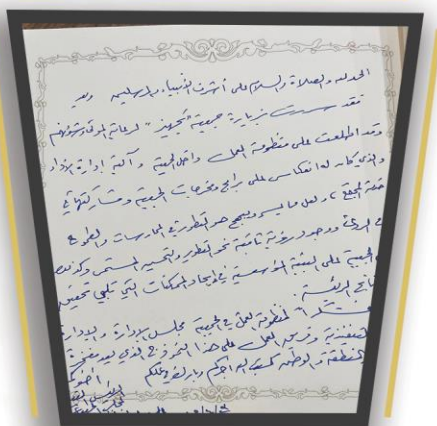 الحمد لله والصلاة والسلام على أشرف الأنبياء والمرسلين وبعد
فقد سررت بزيارة جمعية "تجهيز" لرعاية الموتى وشؤونهم
وقد اطلعت على منظومة العمل داخل الجمعية وآلية إدارة الأداء
والذي كان له انعكاس على برامج ومخرجات الجمعية ومشاركتها في
خدمة المجتمع، ولعل ما يسر ويبهج هو التطور في الممارسات والطموح
في ووجود رؤية ثاقبة نحو التطور والتحسين المستمر
الجمعية على البنية المؤسسية في إيجاد الممكنات التي تلبي تحقيق
الرئيسة.
لمنظومة العمل في الجمعية مجلس الإدارة والإدارة
التنفيذية وفريق العمل على هذا النموذج الذي يعد مفخرة
للمنطقة والوطن كتب الله أجركم وبارك في عملكم
أخوكم